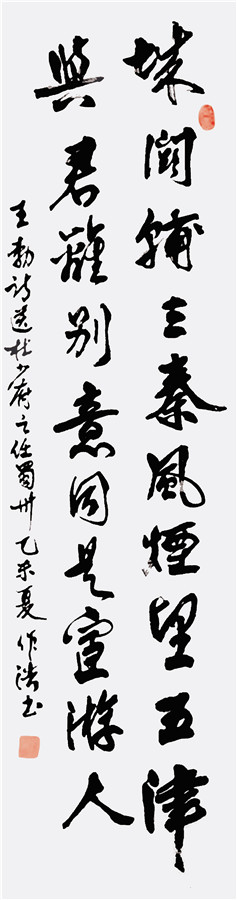 城闕輔三秦風煙望五津
與君離別意同是宦游人
王勃詩送杜少府之任蜀州乙未夏作浩书